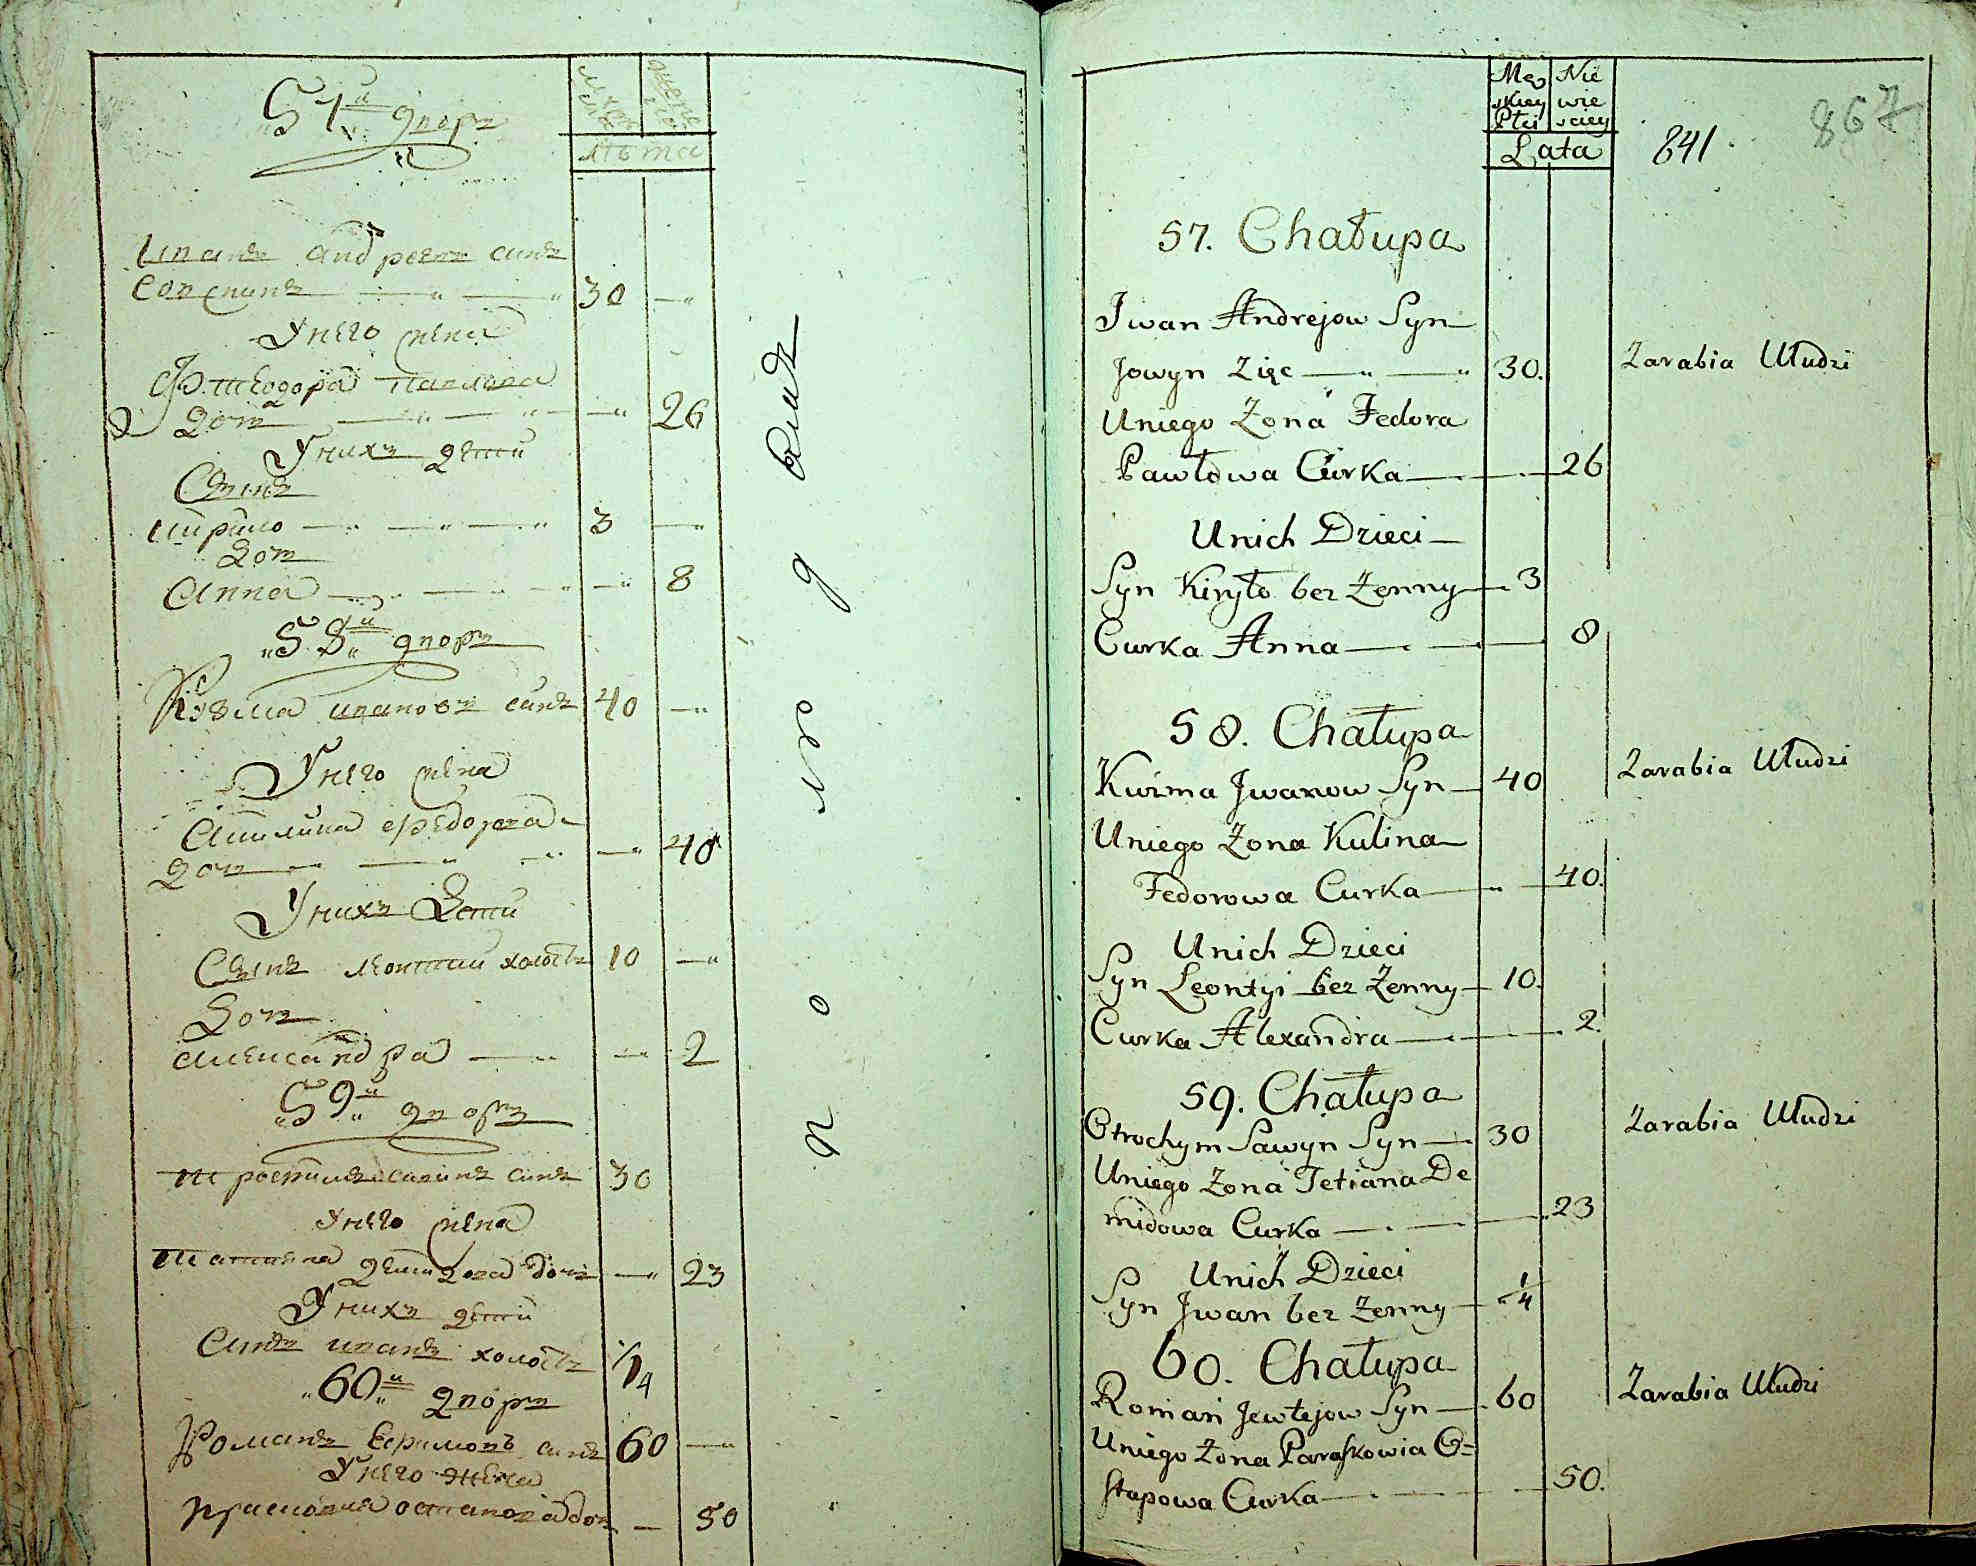 57й дворъ
мужескъ
женска
лѣта
Иванъ андреевъ синъ
30
Унего жена
Ф: теодора павлова
доч
26
Унихъ дети
Сынъ
кирило 3
доч
Анна 8
58й дворъ
Кузма ивановъ синъ 40
Унего жена
Акилина федорова
доч 40
Унихъ дети
Сынъ леонтий холостъ 10
доч
александра 2
59й дворъ
савинъ синъ 30
Унего жена
татияна демидова дочъ 23
Унихъ дети
Синъ иванъ холостъ 1/4
60й дворъ
Романъ синъ 60
Унего жена
остапова доч 50
Męzkiey Płci
Niewiesciey
Lata
841
867
57. Chałupa
Iwan Andrejow Syn
Jowyn Zięc 30. Zarabia Uludzi
Uniego Zona Fedora
Pawłowa Curka 26
Unich Dzieci
Syn Kiryło bez Zenny 3
Curka Anna 8
58. Chałupa
Kuzma Jwanow Syn 40 Zarabia Uludzi
Uniego Zona Kulina
Fedorowa Curka 40.
Unich Dzieci
Syn Leontyi bez Zenny 10.
Curka Alexandra 2.
59. Chałupa
Otrochym Sawyn Syn 30 Zarabia Uludzi
Uniego Zona Tetiana De
midowa Curka 23
Unich Dzieci
Syn Jwan bez Zenny 1/4
60. Chałupa
Roman Jewtejow Syn 60 Zarabia Uludzi
Uniego Zona Paraskowia O=
stapowa Curka 50.